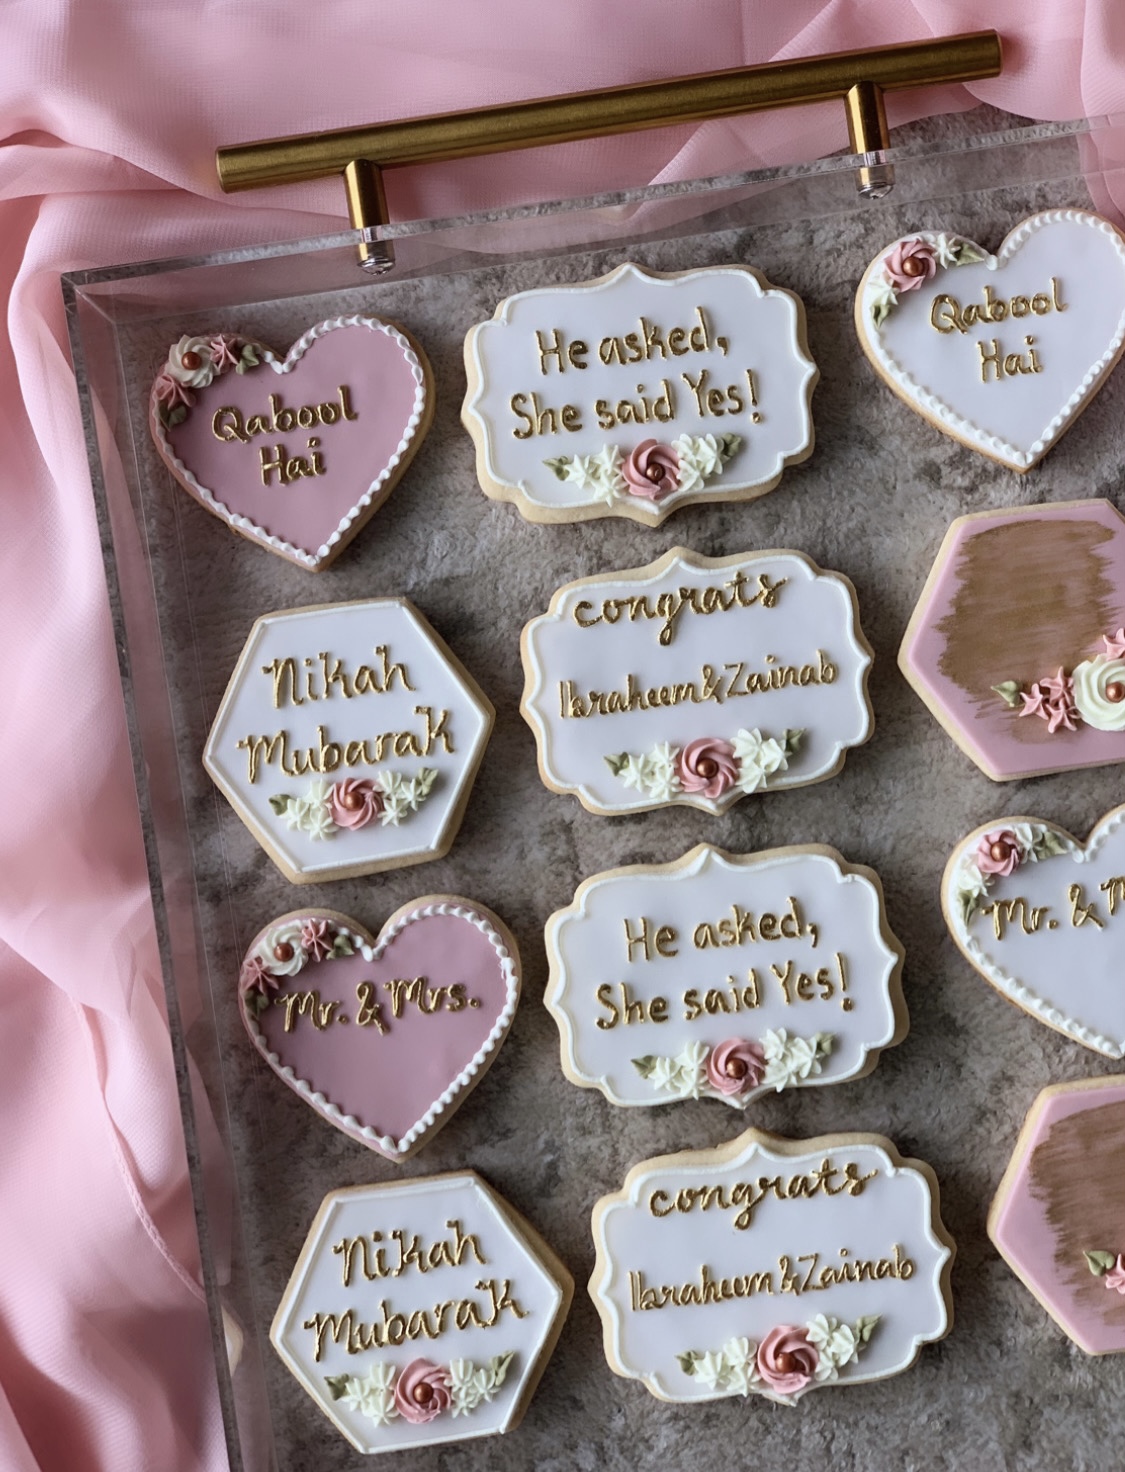 Qabool
Hai
He asked,
She said Yes!
Qabool
Hai
Nikah
Mubarak
congrats
Ibraheem & Zainab
Mr. & Mrs.
He asked,
She said Yes!
Mr. &
Nikah
Mubarak
congrats
Ibraheem & Zainab